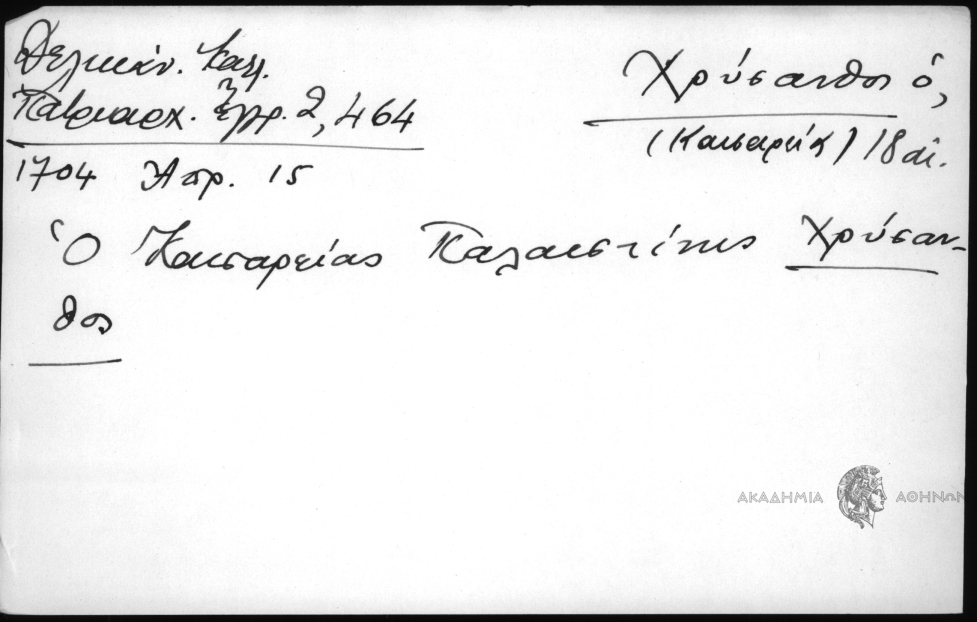 Δελικάν. Καλ.
Πατριαρχ. Ἔγγρ. 2, 464
Χρύσανθος ὁ,
(Καισαρείας) 18 αἰ.
1704 Ἀπρ. 15
Ὁ Καισαρείας Παλαιστίνης Χρύσαν-
θος
ΑΚΑΔΗΜΙΑ ΑΘΗΝΩΝ